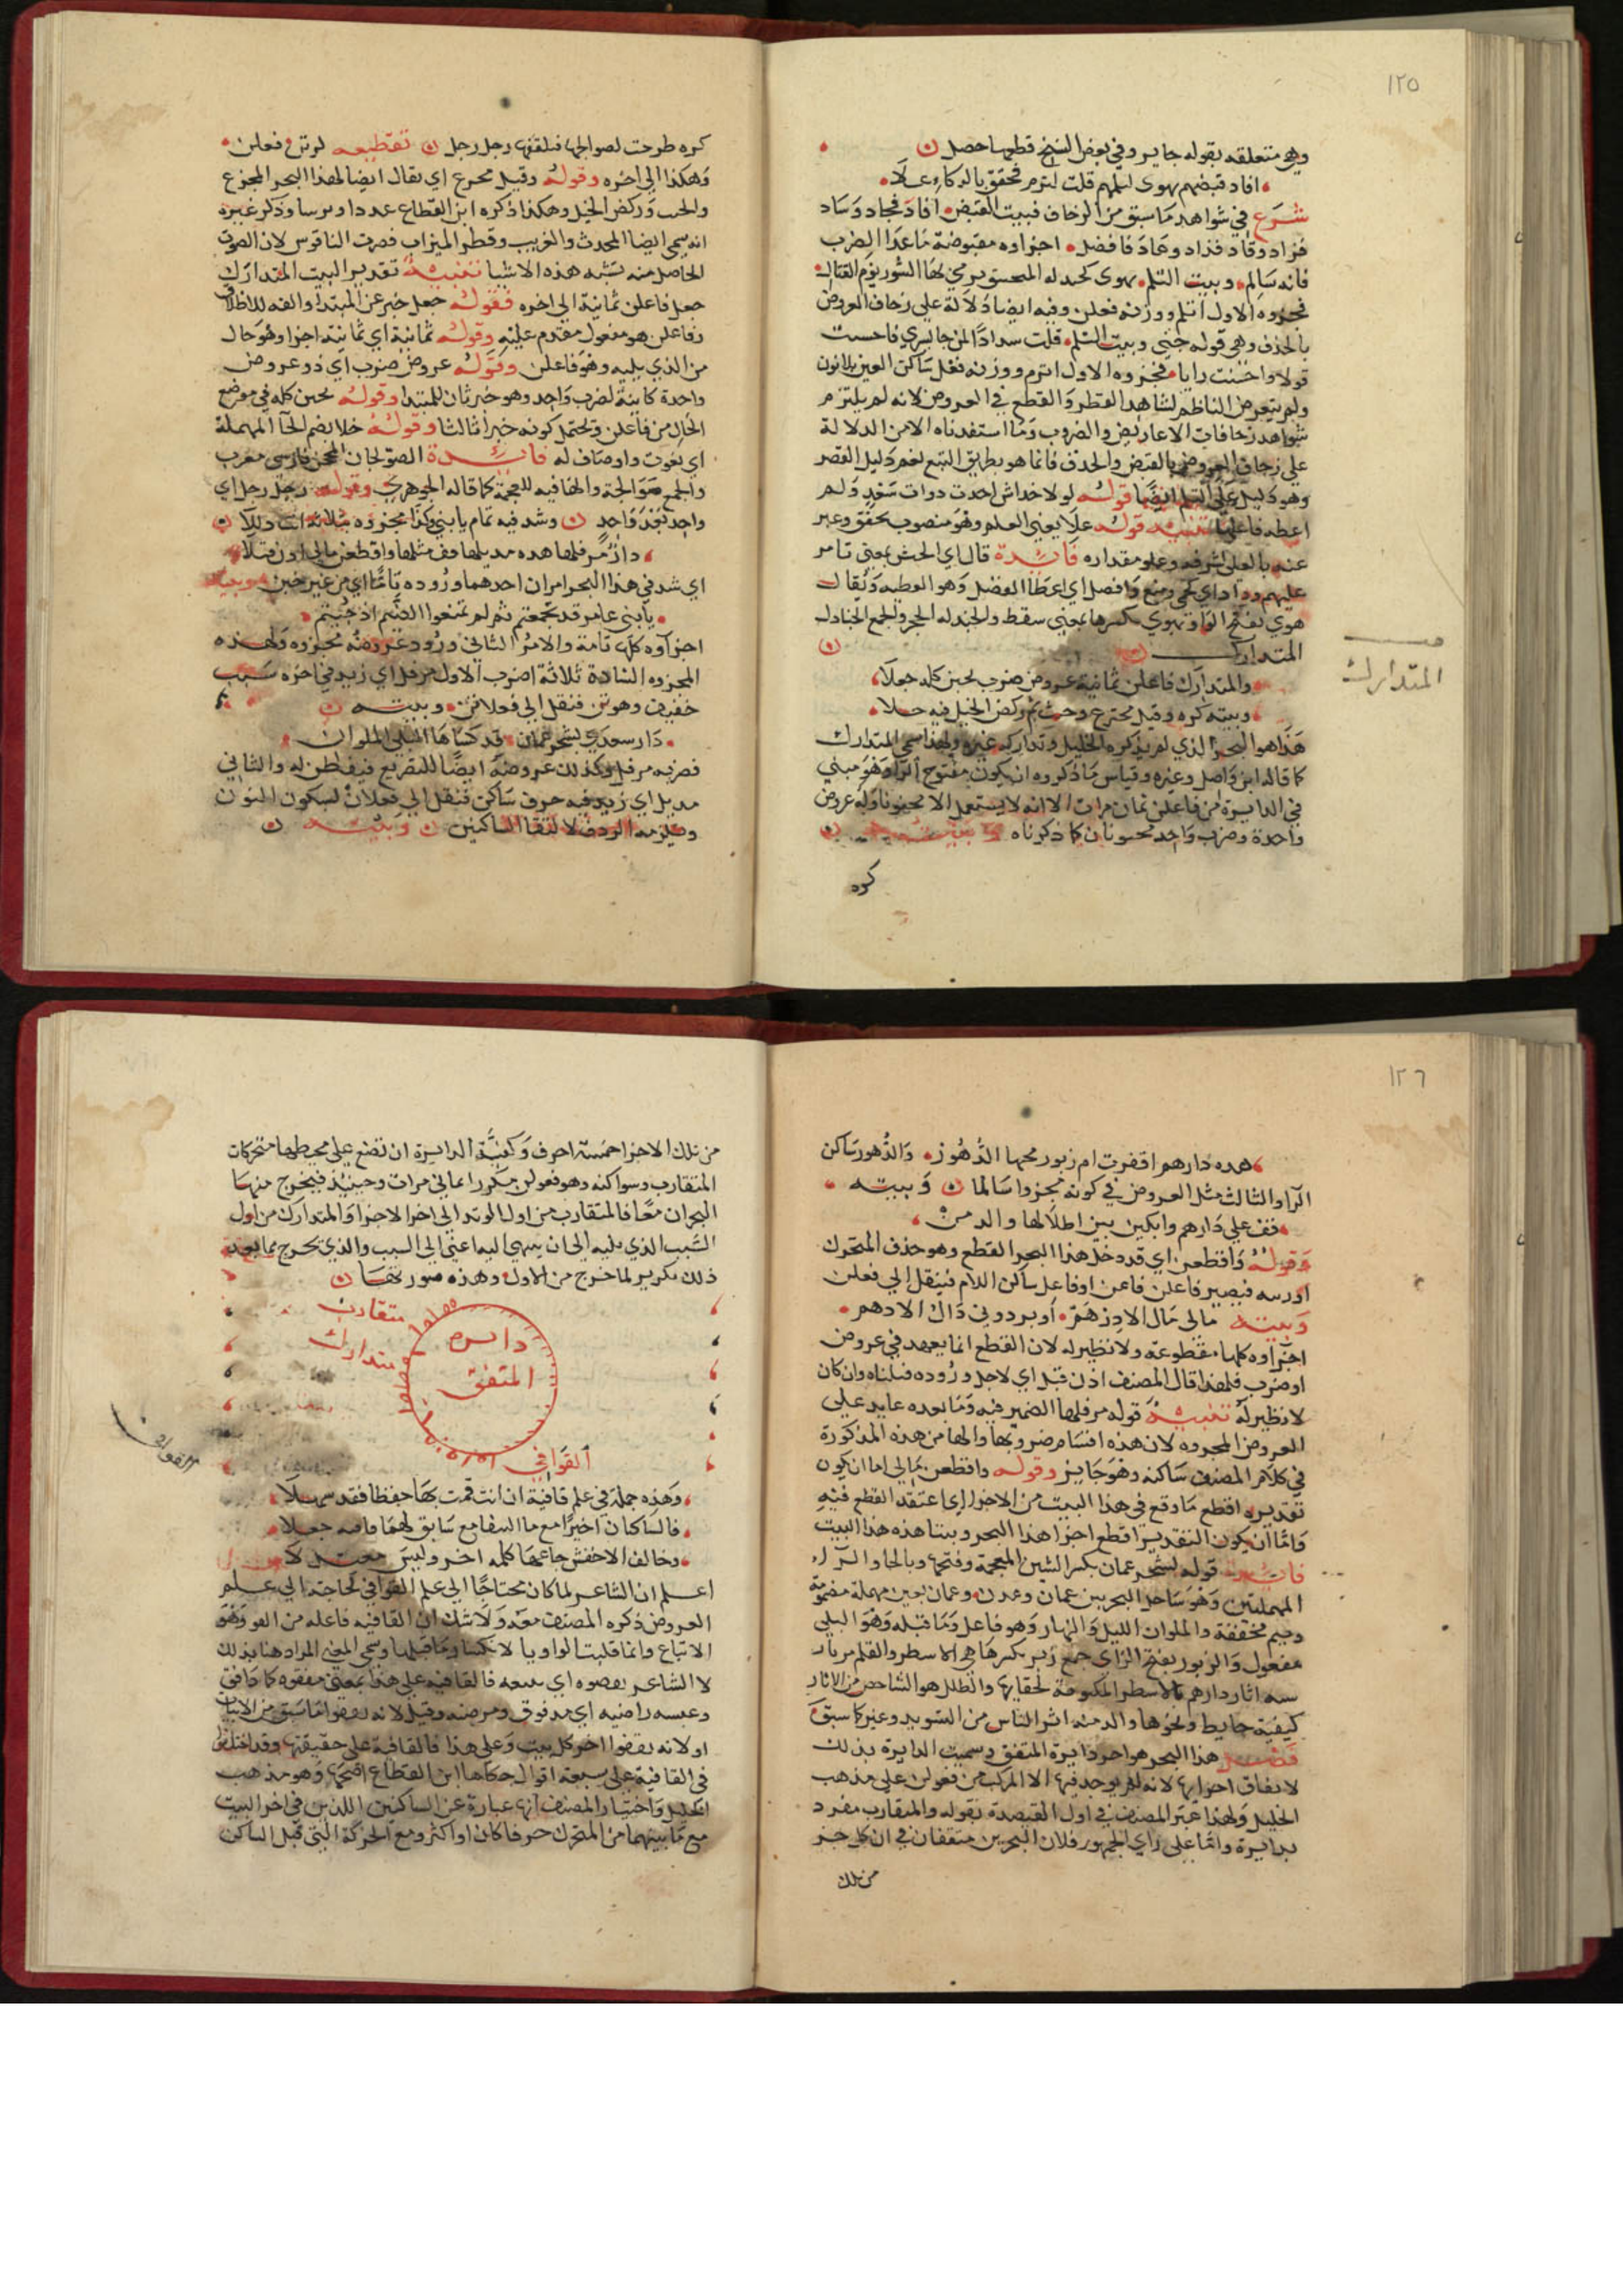 ١٢٥
وهي متعلقه بقوله جاير وفي بعض النسخ قطعها حصل
افاد قبضهم يهوى لسلمهم قلت لترم فحقق بالذكاء علا
شرع في شواهد ما سبق من الزحاف فبيت القبض افاد فجاد وساد
فزاد وقاد فذاد وعاد فافضل اجزاوه مقبوضة ما عدا الضرب
فانه سالم وبيت الثلم
فجزوه الاول اثلم ووزنه فعلن وفيه ايضا دلالة على زحاف العروض
بالحذف وهي قوله وبيت الثلم قلت سدادا لمن جا يسري فاحسنت
قولا واحسنت رايا فجزوه الاول اثرم ووزنه فعل ساكن العين بلا نون
ولم يتعرض الناظم لشاهد القصر والقطع في العروض لانه لم يلتزم
شواهد زحافات الاعاريض والضروب وما استفدناه الا من الدلالة
على زحاف العروض بالقبض والحذف فانما هو بطريق التبع نعم دليل القصر
وهو دليل على الثلم ايضا قوله لولا خداش اخذت دواب سعد ولم
اعطه ما عليها تنبيه قوله علا يعني العلم وهو منصوب بحقق وعبر
عنه بالعلى لشرفه وعلو مقداره فايدة
عليهم وذاد اي حمى ومنع وافضل اي اعطا الفضل وهو العطيه ويقال
هوى بفتح الواو يهوي بكسرها بمعنى سقط والجندله الحجر والجمع الجنادل
المتدارك
المتدارك
والمتدارك فاعلن ثمانية عروض ضرب بخبن كله جعلا
وبيته كره وقيل مخترع وحث ثم ركض الخيل فيه حلا
هذا هو البحر الذي لم يذكره الخليل وتداركه غيره ولهذا سمي المتدارك
كما قاله ابن واصل وغيره وقياس ما ذكروه ان يكون مفتوح الراء وهو مبني
في الدايرة من فاعلن ثمان مرات الا انه لا يستعمل الا مخبونا وله عروض
واحدة وضرب واحد مخبونان كما ذكرناه وبيته
كره
كره طرحت لصوالجها فتلقفها رجل رجل تقطيعه كرتن فعلن
وهكذا الى اخره وقوله وقيل مخترع اي يقال ايضا لهذا البحر المخترع
والخبب وركض الخيل وهكذا ذكره ابن القطاع وذكر غيره
انه سمي ايضا المحدث والغريب وقطر الميزاب وضرب الناقوس لان الصوت
الحاصل منه يشبه هذه الاشيا تنبيه تقدير البيت المتدارك
جعل فاعلن ثمانية الى اخره فقوله جعل خبر عن المبتدا والفه للاطلاق
وفاعلن هو مفعول مقدم عليه وقوله ثمانية اي ثمانية اجزا وهو حال
من الذي يليه وهو فاعلن وقوله عروض ضرب اي ذو عروض
واحدة كاينة لضرب واحد وهو خبر ثان للمبتدا وقوله بخبن كله في موضع
الحال من فاعلن ويحتمل كونه خبرا ثالثا وقوله حلا بضم الحا المهملة
اي نعوت واوصاف له فايدة الصولجان المحجن فارسي معرب
والجمع صوالجة والها فيه للعجمة كما قاله الجوهري وقوله رجل رجل اي
واحد بعد واحد وشذ فيه تمام يا بني وكذا مجزوه
دار مرفلها هده مذيلها وقف مثلها واقطعن مالي اذن قبلا
اي شذ في هذا البحر امران احدهما وروده تاما اي من غير خبن وبيته
يا بني عامر قد تجمعتم ثم لم تمنعوا الضيم اذ جيتم
اجزاوه كلها تامة والامر الثاني ورود عروضه مجزوه ولهذه
المجزوه الشاذة ثلاثة اضرب الاول مرفل اي زيد في اخره سبب
خفيف وهو تن فنقل الى فعلاتن وبيته
دار سعدي بشحر عمان قد كساها البلى الملوان
فضربه مرفل وكذلك عروضه ايضا للتصريع فتفطن له والثاني
مذيل اي زيد فيه حرف ساكن فنقل الى فعلان لسكون النون
ويلزمه الردف لالتقا الساكنين وبيته
١٢٦
هده دارهم اقفرت ام زبور محتها الدهور والدهور ساكن
الرا والثالث مثل العروض في كونه مجزوا سالما وبيته
قف على دارهم وابكين بين اطلالها والدمن
وقوله واقطعن اي قد دخل هذا البحر القطع وهو حذف المتحرك
فيصير فاعلن فاعن او فاعل ساكن اللام فينقل الى فعلن
وبيته مالي مال الا درهم او برذوني ذاك الادهم
اجزاوه كلها مقطوعة ولا نظير له لان القطع انما يعهد في عروض
او ضرب فلهذا قال المصنف اذن قبل اي لاجل وروده قبلناه وان كان
لا نظير له تنبيه قوله مرفلها الضمير فيه وما بعده عايد على
العروض المجزوه لان هذه اقسام ضروبها والها من هذه المذكورة
في كلام المصنف ساكنه وهو جايز وقوله واقطعن مالي اما ان يكون
تقديره اقطع ما وقع في هذا البيت من الاجزا اي اعتقد القطع فيه
واما ان يكون التقدير اقطع اجزا هذا البحر وبيتا هذه هذا البيت
فايدة قوله بشحر عمان بكسر الشين المعجمة وفتحها وبالحا والرا
المهملتين وهو ساحل البحر بين عمان وعدن وعمان بعين مهملة مضمومة
وميم مخففة والملوان الليل والنهار وهو فاعل وما قبله وهو البلى
مفعول والزبور بفتح الزاى جمع زبر بكسرها هي الاسطر والقلم
اثار دارهم بالاسطر المكتوبة لخفايها والطلل هو الشاخص من الاثار
كبقية حايط ونحوها والدمنه اثر الناس من التسويد وغيره كما سبق
فصل هذا البحر هو اخر دايرة المتفق وسميت الدايرة بذلك
لاتفاق اجزايها لانه لم يوجد فيها الا المركب من فعولن على مذهب
الخليل ولهذا عبر المصنف في اول القصيدة بقوله والمتقارب مفرد
بدايرة واما على راي الجمهور فلان البحرين متفقان في ان كل جز
من تلك
من تلك الاجزا خمسة احرف وكيفية الدايرة ان تضع على محيطها متحركات
المتقارب وسواكنه وهو فعولن مكررا ثماني مرات وحينيذ فيخرج منها
البحران معا فالمتقارب من اول الوتد الى اخر الاجزا والمتدارك من اول
السبب الذي يليه الى ان ينتهي اليها اعني الى السبب والذي يخرج مما بعد
ذلك تكرير لما خرج من الاول وهذه صورتها
متقارب
متدارك
دايره
المتفق
القوافي
القوافي
وهذه جملة في علم قافية ان انت قمت بها حفظا فقد سهلا
فالساكنان اخيرا مع ما اكتنفا مع سابق لهما قافيه جعلا
وخالف الاخفش جاعلها كلمه اخر وليس
اعلم ان الشاعر لما كان محتاجا الى علم القوافي كحاجته الى علم
العروض ذكره المصنف معه ولا شك ان القافيه فاعله من القفو وهو
الاتباع وانما قلبت الواو يا لانكسار ما قبلها وسمي المعنى المراد هنا بذلك
لان الشاعر يقفوه اي يتبعه فالقافيه على هذا بمعنى مقفوه كما دافق
وعيشه راضيه اي مدفوق ومرضيه وقيل لانه يقفوا ما سبق من الابيات
او لانه يقفوا اخر كل بيت وعلى هذا فالقافية على حقيقتها وقد اختلف
في القافية على سبعة اقوال حكاها ابن القطاع اصحها وهو مذهب
الخليل واختيار المصنف انها عبارة عن الساكنين اللذين في اخر البيت
مع ما بينهما من المتحرك حرفا كان او اكثر ومع الحركة التي قبل الساكن